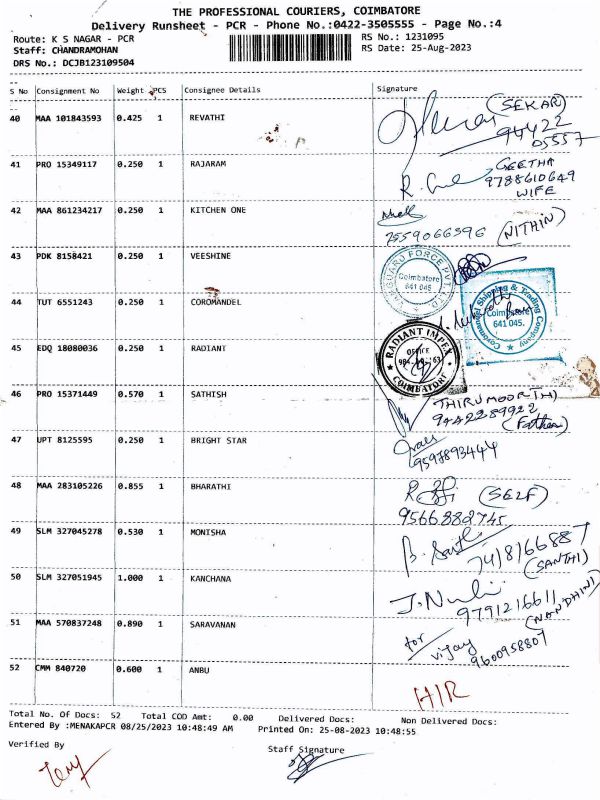 THE PROFESSIONAL COURIERS, COIMBATORE
Delivery Runsheet - PCR - Phone No.:0422-3505555 - Page No.:4
Route: K S NAGAR - PCR RS No.: 1231095
Staff: CHANDRAMOHAN RS Date: 25-Aug-2023
DRS No.: DCJB123109504
S No Consignment No Weight PCS Consignee Details Signature
40 MAA 101843593 0.425 1 REVATHI (SEKAR)
94422
05557
41 PRO 15349117 0.250 1 RAJARAM GEETHA
9788610649
WIFE
42 MAA 861234217 0.250 1 KITCHEN ONE
7559066596 (NITHIN)
43 PDK 8158421 0.250 1 VEESHINE VANGUARD FORCE PVT. LTD.
Coimbatore
641 045
44 TUT 6551243 0.250 1 COROMANDEL Coromandel Shipping & Trading Company
Coimbatore
641 045.
45 EDQ 18080036 0.250 1 RADIANT RADIANT IMPEX
OFFICE
COIMBATORE
46 PRO 15371449 0.570 1 SATHISH THIRUMOORTHI
9442289922
(Father)
47 UPT 8125595 0.250 1 BRIGHT STAR
9597893444
48 MAA 283105226 0.855 1 BHARATHI (SELF)
9566882745
49 SLM 327045278 0.530 1 MONISHA
7418166887
(SANTHI)
50 SLM 327051945 1.000 1 KANCHANA
9791216611
(NANDHINI)
51 MAA 570837248 0.890 1 SARAVANAN for
vijay
9600958807
52 CMM 840720 0.600 1 ANBU
H/R
Total No. Of Docs: 52 Total COD Amt: 0.00 Delivered Docs: Non Delivered Docs:
Entered By :MENAKAPCR 08/25/2023 10:48:49 AM Printed On: 25-08-2023 10:48:55
Verified By Staff Signature